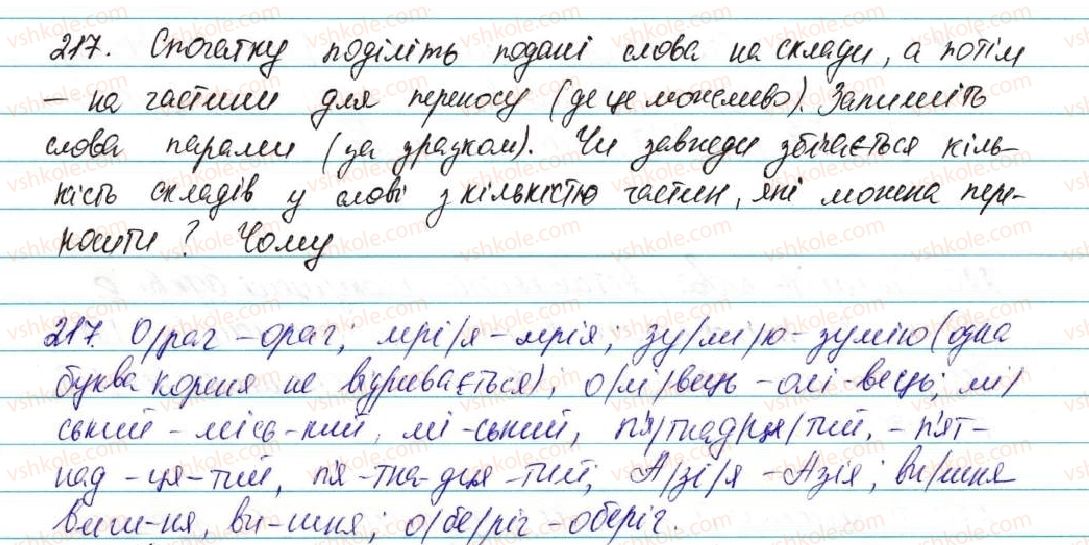 217. Спочатку поділіть подані слова на склади, а потім
– на частини для переносу (де це можливо). Запишіть
слова парами (за зразком). Чи завжди збігається кіль-
кість складів у слові з кількістю частин, які можна пере-
носити? Чому
217. О/раг – ораг; мрі/я – мрія; зу/мі/ю – зумію (одна
буква кореня не відривається); о/лі/вець – олі-вець; мі/
ський – місь-кий, мі-ський, п'я/тнад/ця/тий, – п'ят-
над-ця-тий, п'я-тна-дця-тий; А/зі/я – Азія; ви/шня
виш-ня, ви-шня; о/бе/ріг – оберіг.